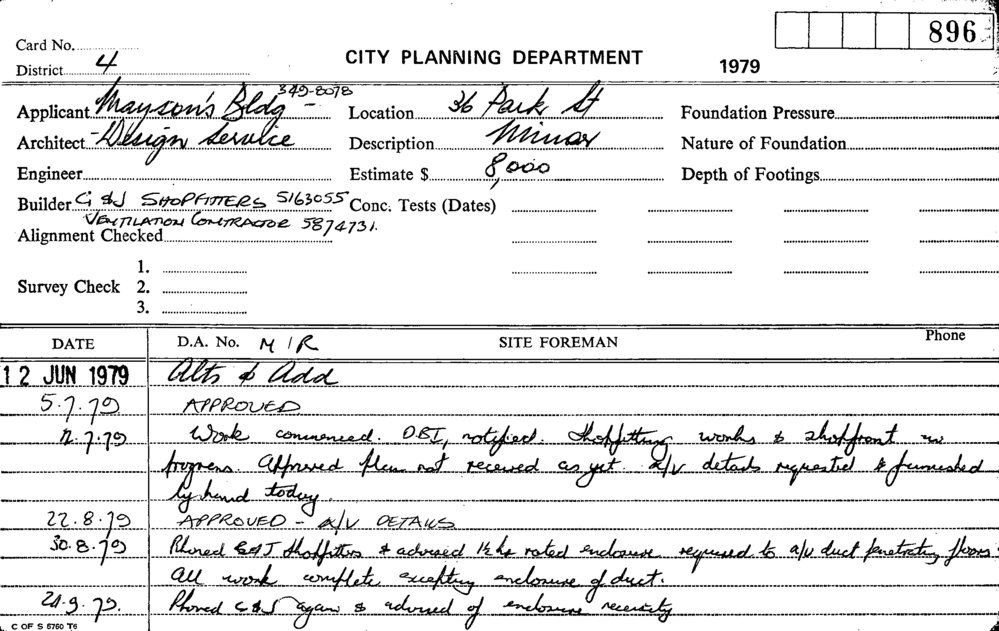 896
Card No.
CITY PLANNING DEPARTMENT
District 4
1979
349-8078
Applicant Mayson's Bldg - Location 36 Park St Foundation Pressure
Architect - Design Service Description Minor Nature of Foundation
Engineer Estimate $ 8,000 Depth of Footings
Builder C & J SHOPFITTERS 5163055 Conc. Tests (Dates)
VENTILATION CONTRACTOR 5874731.
Alignment Checked
1.
Survey Check 2.
3.
DATE D.A. No. M/R SITE FOREMAN Phone
12 JUN 1979 Alts & Add
5.7.79 APPROVED
12.7.79 Work commenced. DBI, notified. Shopfitting works & shopfront in
progress. Approved plan not received as yet. a/v details requested & furnished
by hand today.
22.8.79 APPROVED - a/V DETAILS
30.8.79 Phoned C&J Shopfitters & advised 1½ hr rated enclosure required to a/v duct penetrating floors
All work complete excepting enclosure of duct.
Phoned C & J again & advised of enclosure necessity
C OF S 5760 T6